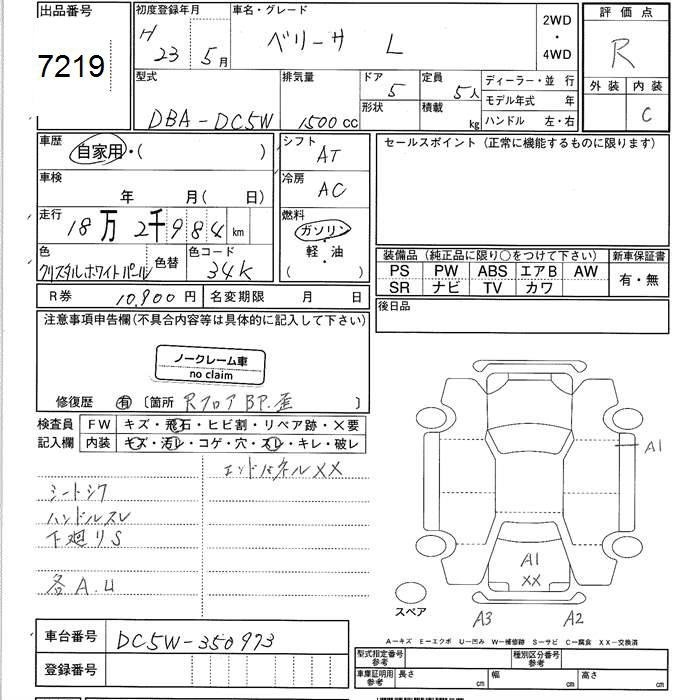 出品番号
7219
初度登録年月
H 23 5月
車名・グレード
ベリーサ L
2WD
・
4WD
評価点
R
外装 内装
C
型式
DBA-DC5W
排気量
1500cc
ドア
5
定員
5人
形状
積載
kg
ディーラー・並 行
モデル年式 年
ハンドル 左・右
車歴
自家用・( )
シフト
AT
セールスポイント (正常に機能するものに限ります)
車検
年 月( 日)
冷房
AC
走行
18万2千984km
燃料
ガソリン
軽・油
( )
色
クリスタルホワイトパール
色替
色コード
34K
装備品 (純正品に限り○をつけて下さい)
新車保証書
PS PW ABS エアB AW
SR ナビ TV カワ
有・無
R券 10,900円
名変期限 月 日
後日品
注意事項申告欄(不具合内容等は具体的に記入して下さい)
ノークレーム車
no claim
修復歴 有 〔箇所 Rフロア BP.歪 〕
検査員
記入欄
FW キズ・飛石・ヒビ割・リペア跡・×要
内装 キズ・汚レ・コゲ・穴・スレ・キレ・破レ
エンドパネルXX
シートシワ
ハンドルスレ
下廻りS
各A.U
A1
A1
XX
スペア
A3
A2
A-キズ E-エクボ U-凹み W-補修跡 S-サビ C-腐食 XX-交換済
車台番号
DC5W-350973
登録番号
型式指定番号
参考
種別区分番号
参考
車庫証明用
参考
長さ cm
幅 cm
高さ cm